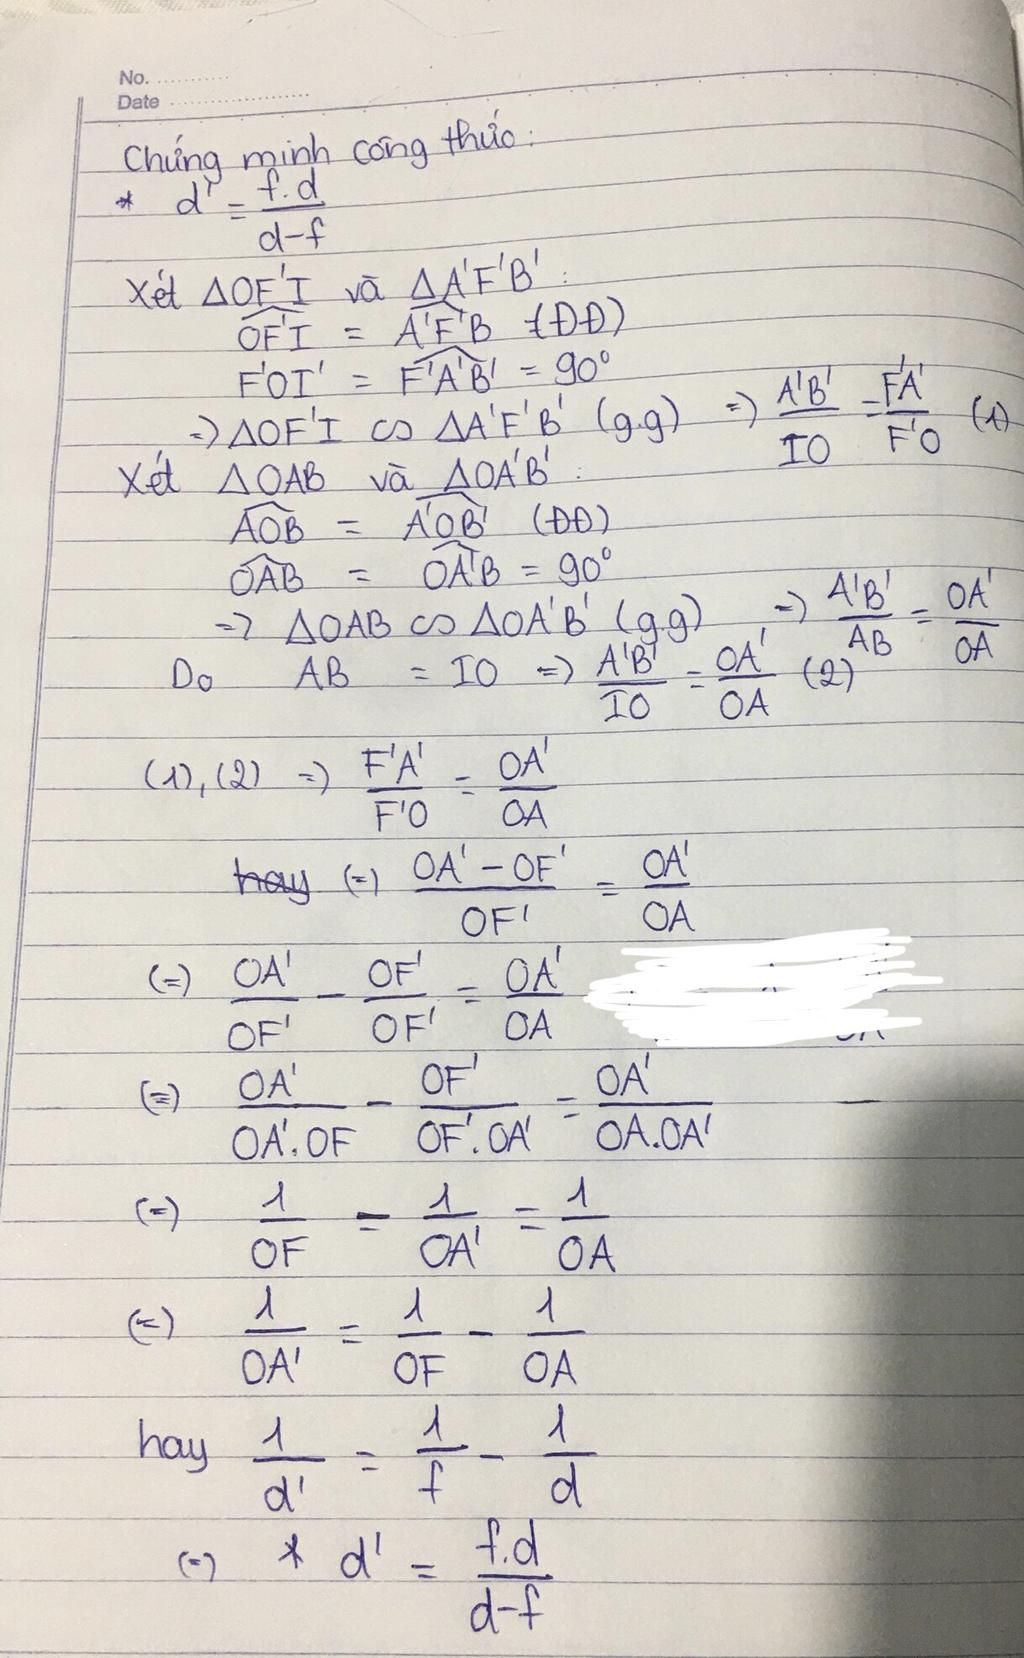 No. ...........
Date .....................
Chứng minh công thức:
* d' = f.d / d-f
Xét ΔOF'I và ΔA'F'B' :
OF'I = A'F'B (ĐĐ)
F'OI' = F'A'B' = 90°
=> ΔOF'I ∽ ΔA'F'B' (g.g) => A'B' / IO = F'A' / F'O (1)
Xét ΔOAB và ΔOA'B' :
AOB = A'OB' (ĐĐ)
OAB = OA'B = 90°
=> ΔOAB ∽ ΔOA'B' (g.g) => A'B' / AB = OA' / OA
Do AB = IO => A'B' / IO = OA' / OA (2)
(1), (2) => F'A' / F'O = OA' / OA
hay (=) OA' - OF' / OF' = OA' / OA
(=) OA' / OF' - OF' / OF' = OA' / OA
(=) OA' / OA'.OF - OF' / OF'.OA' = OA' / OA.OA'
(=) 1 / OF - 1 / OA' = 1 / OA
(=) 1 / OA' = 1 / OF - 1 / OA
hay 1 / d' = 1 / f - 1 / d
(=) * d' = f.d / d-f